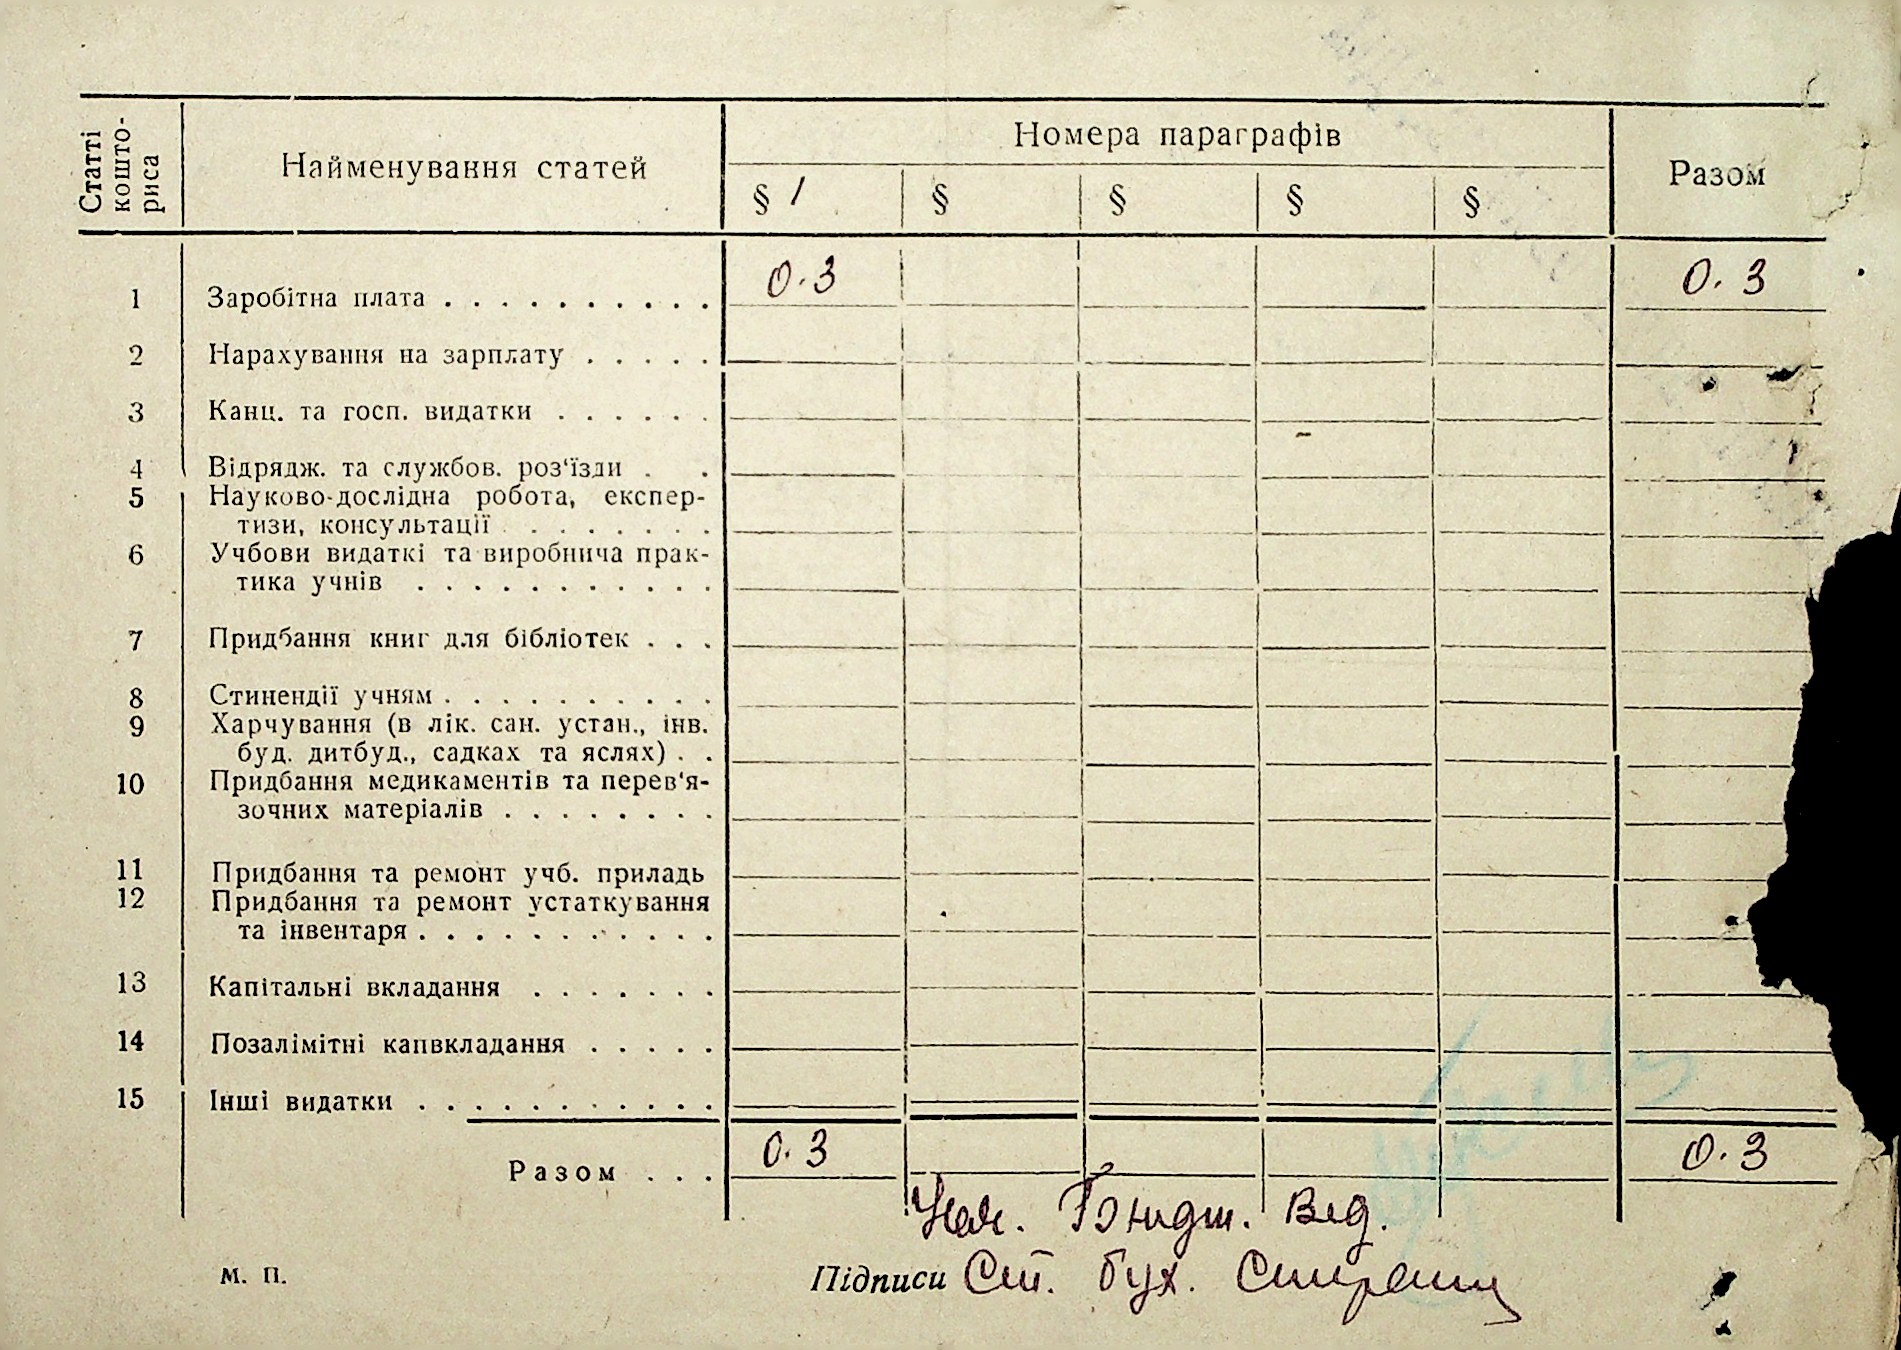 Статті кошто-риса
Найменування статей
Номера параграфів
§ 1 § § § §
Разом
1 Заробітна плата . . . . . . . . . . 0.3 0.3
2 Нарахування на зарплату . . . . .
3 Канц. та госп. видатки . . . . . .
4 Відрядж. та службов. роз'їзди . .
5 Науково-дослідна робота, експер-
тизи, консультації . . . . . . .
6 Учбови видаткі та виробнича прак-
тика учнів . . . . . . . . . . .
7 Придбання книг для бібліотек . . .
8 Стипендії учням . . . . . . . . . .
9 Харчування (в лік. сан. устан., інв.
буд. дитбуд., садках та яслях) . .
10 Придбання медикаментів та перев'я-
зочних матеріалів . . . . . . . .
11 Придбання та ремонт учб. приладь
12 Придбання та ремонт устаткування
та інвентаря . . . . . . . . . . .
13 Капітальні вкладання . . . . . . .
14 Позалімітні капвкладання . . . . .
15 Інші видатки . . . . . . . . . . .
Разом . . . 0.3 0.3
Нач. Бюдж. Вед.
М. П.
Підписи Ст. бух.